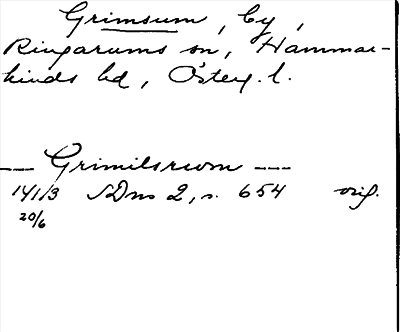 Grimsum, by,
Ringarums sn, Hammar-
kinds hd, Östergl. l.
— Grimilsrwm ---
1413 SDns 2, s. 654 orig.
20/6